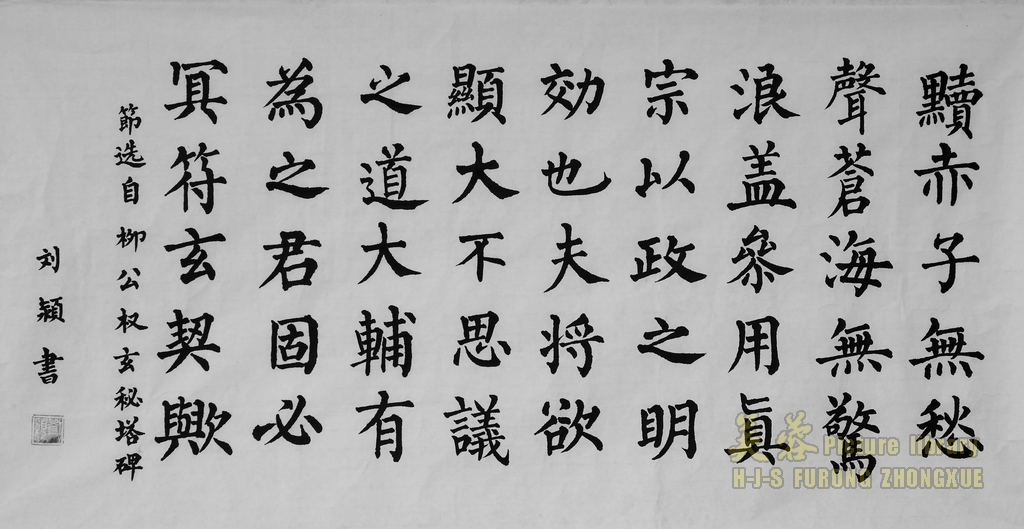 黷赤子無愁
聲蒼海無驚
浪盖叅用眞
宗以政之明
効也夫將欲
顯大不思議
之道大輔有
為之君固必
冥符玄契歟
節选自柳公权玄秘塔碑
刘颖書
芙蓉 Picture library
H-J-S FURONG ZHONGXUE